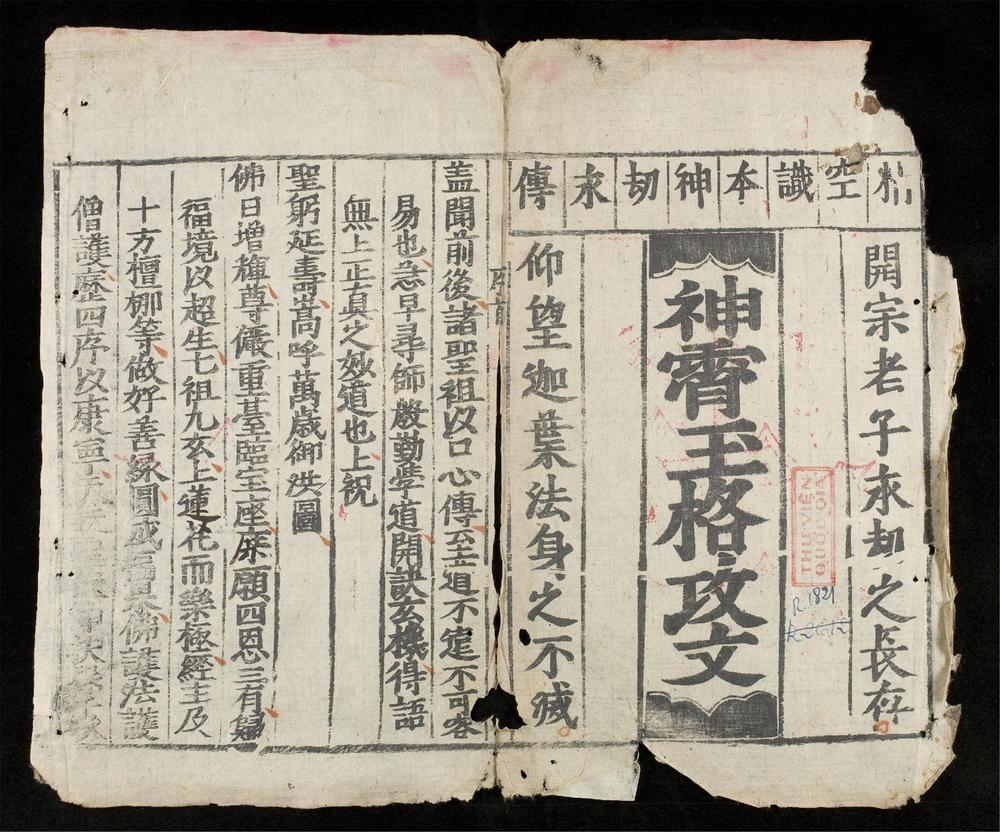 空識本神刼永傳
開宗老子永刼之長存
神霄玉格攻文
仰望迦葉法身之不滅
THƯ VIỆN
QUỐC GIA
R.1821
盖聞前後諸聖祖以口心傳云至道不遠不可容
易也急早尋師殷勤學道開訣玄機得語
無上正真之妙道也上祝
聖躬延壽嵩呼萬歲御洪圖
佛日增輝尊儼重臺臨宝座庶願四恩三有歸
福境以超生七祖九玄上蓮花而樂極經主及
十方檀梛等做好善緣圓成佛護法護
僧護歷四序以康寧